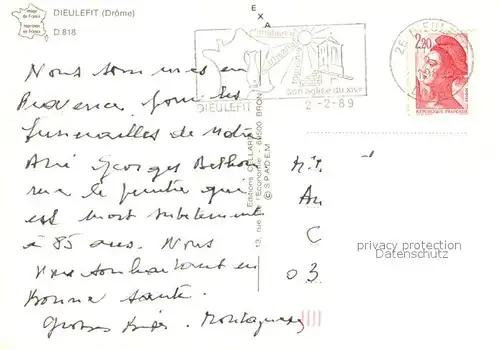 image de France
imprimée en France
DIEULEFIT (Drôme)
D.818
EXA
DIEULEFIT
son église du XIVe
2-2-89
26 DIEU
2,20
REPUBLIQUE FRANÇAISE
Nous sommes en
Provence pour les
funérailles de notre
Ami Georges
le peintre qui
est mort subitement
à 85 ans. Nous
vous souhaitant en
Bonne santé.
Grosses bises. Montagnes
Editions CELLARD
13, rue de l'Economie - 69500 BRON
© SPADEM
M.
Au
C
03
privacy protection
Oldthing.com